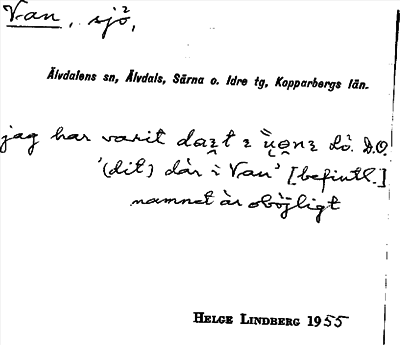 Van, sjö,
Älvdalens sn, Älvdals, Särna o. Idre tg, Kopparbergs län.
jag har varit
'(dit) där i Van' [befintl.]
namnet är oböjligt
HELGE LINDBERG 1955